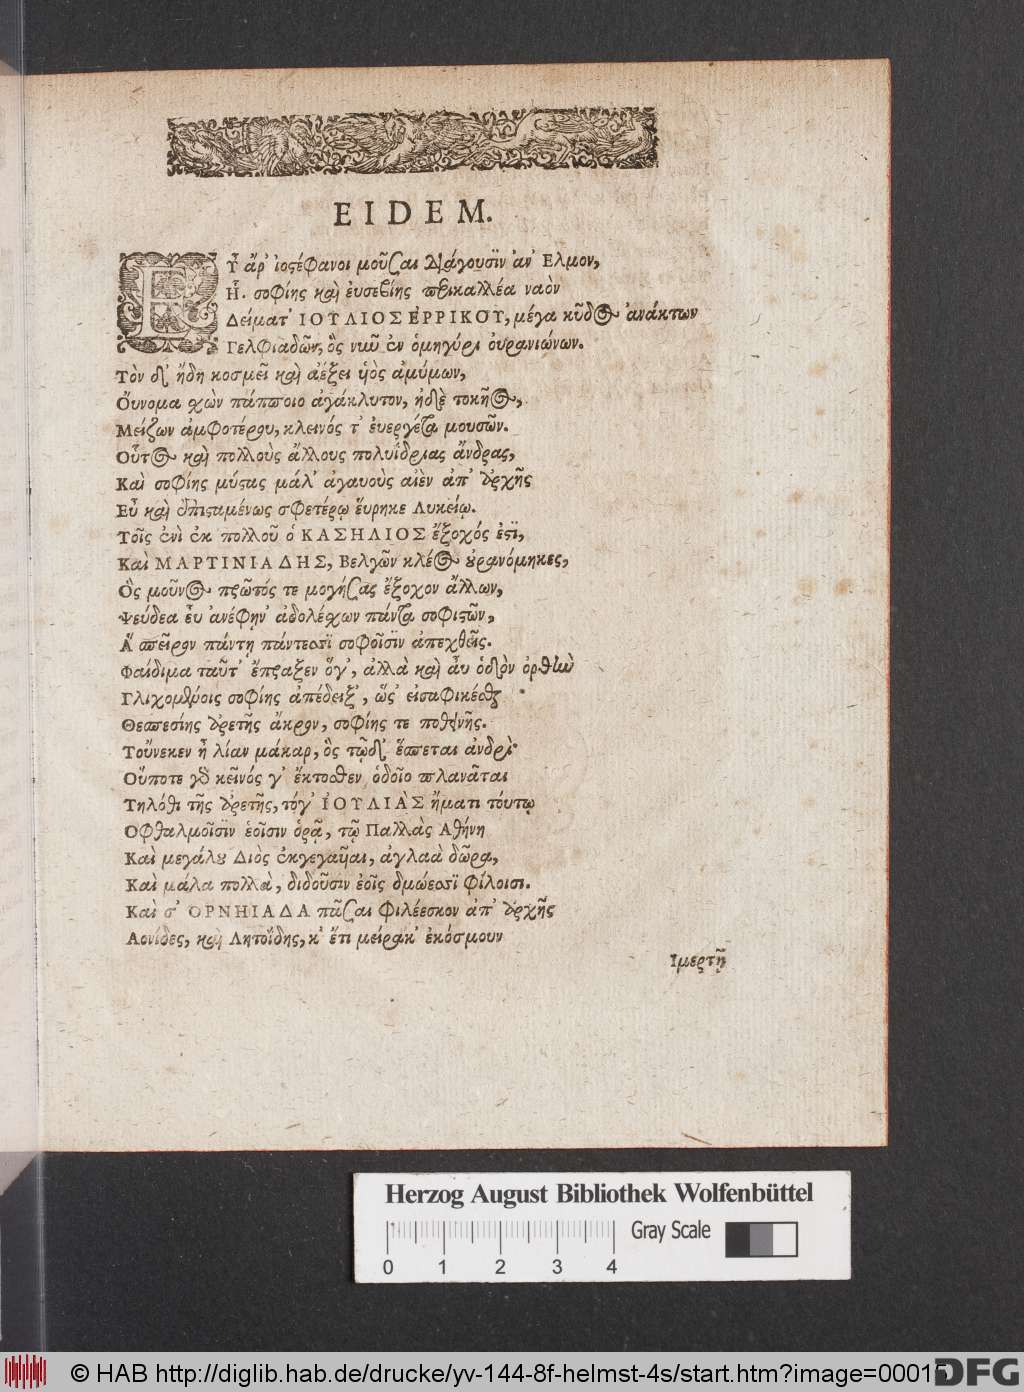 EIDEM.
Εὖ ἄρ' ἰοστέφανοι μοῦσαι διάγουσϊν ἀν' Ελμον,
Ἧ. σοφίης καὶ ἐυσεβίης περικαλλέα ναὸν
Δείματ' ΙΟΥΛΙΟΣ ΕΡΡΙΚΟΥ, μέγα κῦδος ἀνάκτων
Γελφιαδῶν, ὃς νιῦ ἐν ὁμηγύρι ὀυρανιώνων.
Τὸν δ' ἤδη κοσμεῖ καὶ ἀέξει ὑιὸς ἀμύμων,
Οὔνομα ἔχων πάπποιο ἀγάκλυτον, ἠδὲ τοκῆος,
Μείζων ἀμφοτέρου, κλεινός τ' ἐυεργέτα μουσῶν.
Οὗτος καὶ πολλοὺς ἄλλους πολυΐδριας ἄνδρας,
Και σοφίης μύστας μάλ' ἀγαυοὺς αἰὲν ἀπ' ἀρχῆς
Εὖ καὶ ἐπισταμένως σφετέρῳ ἕυρηκε Λυκείῳ.
Τοῖς ἐνὶ ἐκ πολλοῦ ὁ ΚΑΣΗΛΙΟΣ ἔξοχός ἐστϊ,
Και ΜΑΡΤΙΝΙΑΔΗΣ, Βελγῶν κλέος ὀυρανόμηκες,
Ὃς μοῦνος πρῶτός τε μογήσας ἔξοχον ἄλλων,
Ψεύδεα ἐυ ἀνέφην' ἀδολέσχων πάντα σοφιστῶν,
Ἃ πεῖρον πάντῃ πάντεσσϊ σοφοῖσϊν ἀπεχθεῖς.
Φαίδιμα ταῦτ' ἔπραξεν ὅγ', ἀλλὰ καὶ ἆυ ὁδὸν ὀρθὴν
Γλιχομένοις σοφίης ἀπέδειξ', ὥς' εἰσαφικέσθαι
Θεσπεσίης ἀρετῆς ἄκρον, σοφίης τε ποθεινῆς.
Τοὔνεκεν ἦ λίαν μάκαρ, ὃς τῷδ' ἕσπεται ἀνδρί·
Οὔποτε γὰρ κεῖνός γ' ἔκτοσθεν ὁδοῖο πλανᾶται
Τηλόθι τῆς ἀρετῆς, τόγ' ΙΟΥΛΙΑΣ ἤματι τόυτῳ
Οφθαλμοῖσϊν ἑοῖσιν ὁρᾷ, τῷ Παλλὰς Αθήνη
Και μεγάλου Διὸς ἐκγεγαῆαι, ἀγλαὰ δῶρα,
Και μάλα πολλὰ, διδοῦσιν ἑοῖς δμώεσσϊ φίλοισι.
Και σ' ΟΡΝΗΙΑΔΑ πᾶσαι φιλέεσκον ἀπ' ἀρχῆς
Αονίδες, καὶ Λητοΐδης, κ' ἔτι μείρακ' ἐκόσμουν
Ιμερτῇ
Herzog August Bibliothek Wolfenbüttel
Gray Scale
0 1 2 3 4
© HAB http://diglib.hab.de/drucke/yv-144-8f-helmst-4s/start.htm?image=00015
DFG